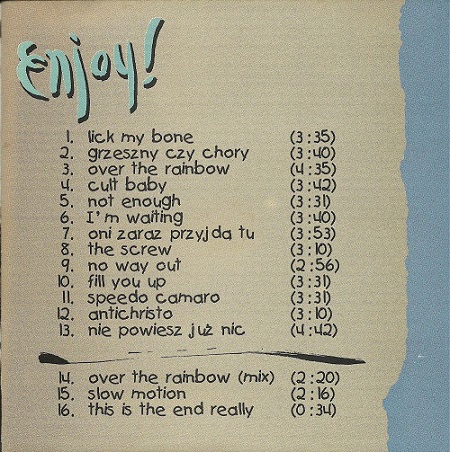 enjoy!
1. lick my bone (3:35)
2. grzeszny czy chory (3:40)
3. over the rainbow (4:35)
4. cult baby (3:42)
5. not enough (3:31)
6. I'm waiting (3:40)
7. oni zaraz przyjdą tu (3:53)
8. the screw (3:10)
9. no way out (2:56)
10. fill you up (3:31)
11. speedo camaro (3:31)
12. antichristo (3:10)
13. nie powiesz już nic (4:42)
14. over the rainbow (mix) (2:20)
15. slow motion (2:16)
16. this is the end really (0:34)